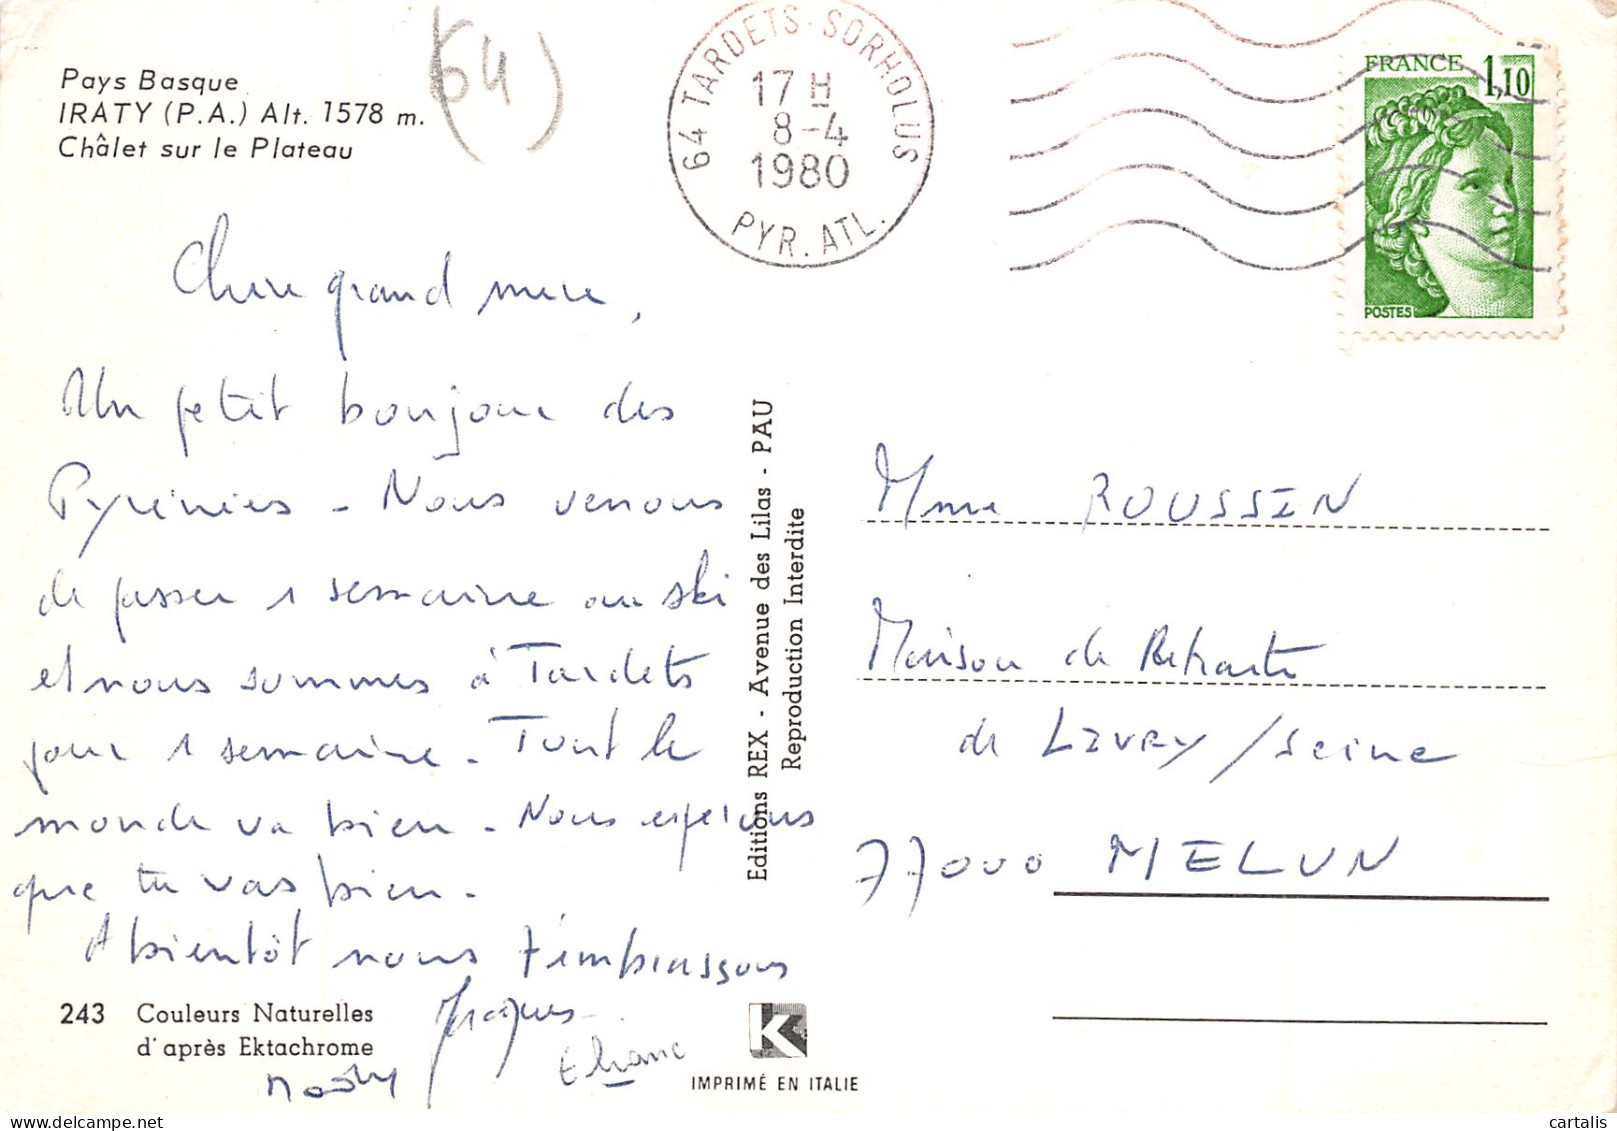 Pays Basque
IRATY (P.A.) Alt. 1578 m.
Châlet sur le Plateau
(64)
64 TARDETS-SORHOLUS
17 H
8-4
1980
PYR. ATL.
FRANCE 1,10
POSTES
Chère grand mère,
Un petit bonjour des
Pyrénées - Nous venons
de passer 1 semaine au ski
et nous sommes à Tardets
pour 1 semaine. Tout le
monde va bien. Nous espérons
que tu vas bien.
A bientôt nous t'embrassons
Jacques
243 Couleurs Naturelles
d'après Ektachrome
Editions REX - Avenue des Lilas - PAU
Reproduction Interdite
K
IMPRIMÉ EN ITALIE
Mme ROUSSIN
Maison de Retraite
de LIVRY /Seine
77000 MELUN
cartalis